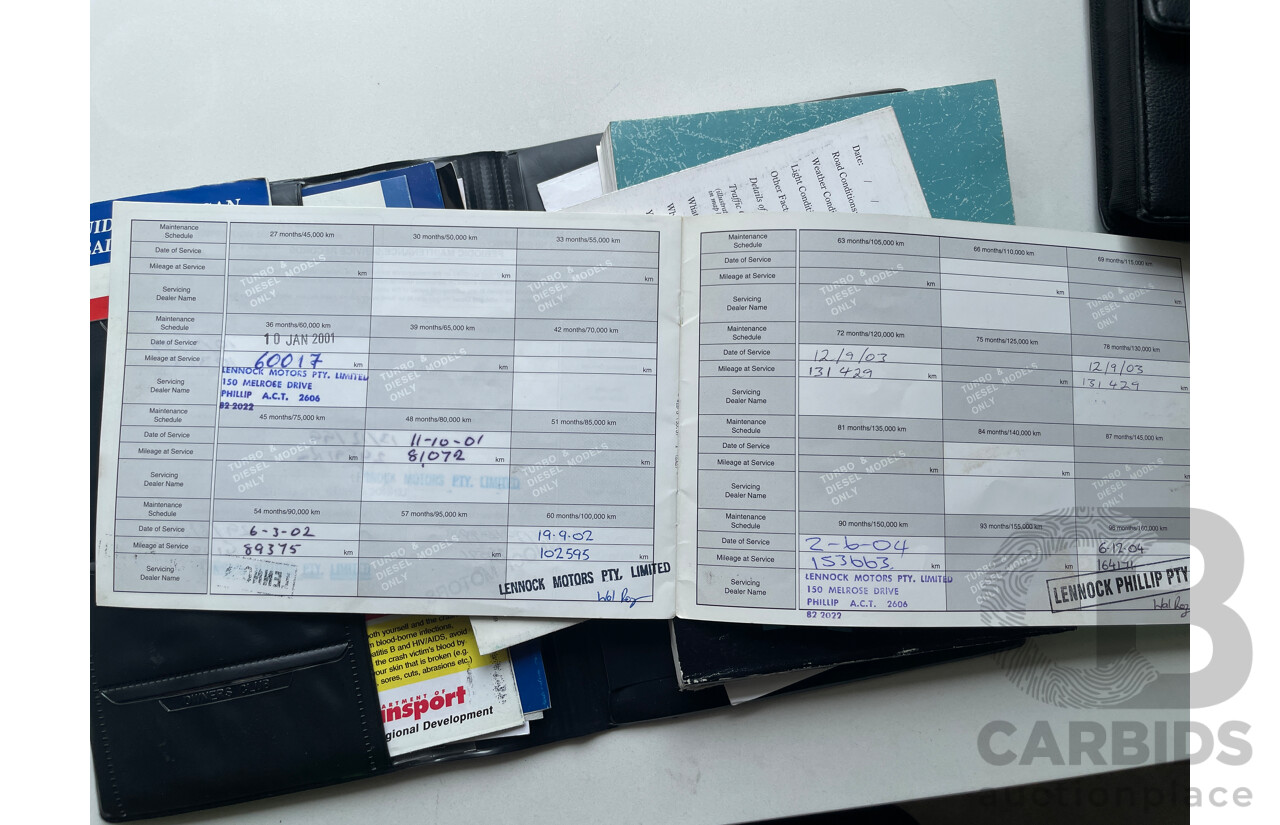 Date: / /
Road Conditions:
Weather Condi
Light Conditi
Other Fact
Details of
Traffic
Maintenance Schedule 27 months/45,000 km 30 months/50,000 km 33 months/55,000 km
Date of Service
Mileage at Service km km km
Servicing Dealer Name TURBO & DIESEL MODELS ONLY TURBO & DIESEL MODELS ONLY
Maintenance Schedule 36 months/60,000 km 39 months/65,000 km 42 months/70,000 km
Date of Service 10 JAN 2001
Mileage at Service 60017 km km km
Servicing Dealer Name LENNOCK MOTORS PTY. LIMITED TURBO & DIESEL MODELS ONLY
150 MELROSE DRIVE
PHILLIP A.C.T. 2606
82 2022
Maintenance Schedule 45 months/75,000 km 48 months/80,000 km 51 months/85,000 km
Date of Service 11-10-01
Mileage at Service km 81,072 km km
Servicing Dealer Name TURBO & DIESEL MODELS ONLY TURBO & DIESEL MODELS ONLY
Maintenance Schedule 54 months/90,000 km 57 months/95,000 km 60 months/100,000 km
Date of Service 6-3-02 19.9.02
Mileage at Service 89375 km km 102595 km
Servicing Dealer Name TURBO & DIESEL MODELS ONLY LENNOCK MOTORS PTY. LIMITED
Maintenance Schedule 63 months/105,000 km 66 months/110,000 km 69 months/115,000 km
Date of Service
Mileage at Service km km km
Servicing Dealer Name TURBO & DIESEL MODELS ONLY TURBO & DIESEL MODELS ONLY
Maintenance Schedule 72 months/120,000 km 75 months/125,000 km 78 months/130,000 km
Date of Service 12/9/03 12/9/03
Mileage at Service 131 429 km km 131 429 km
Servicing Dealer Name TURBO & DIESEL MODELS ONLY
Maintenance Schedule 81 months/135,000 km 84 months/140,000 km 87 months/145,000 km
Date of Service
Mileage at Service km km km
Servicing Dealer Name TURBO & DIESEL MODELS ONLY TURBO & DIESEL MODELS ONLY
Maintenance Schedule 90 months/150,000 km 93 months/155,000 km 96 months/160,000 km
Date of Service 2-6-04 6.12.04
Mileage at Service 153663. km km
Servicing Dealer Name LENNOCK MOTORS PTY. LIMITED TURBO & DIESEL MODELS ONLY LENNOCK PHILLIP PTY
150 MELROSE DRIVE
PHILLIP A.C.T. 2606
82 2022
oth yourself and the
n blood-borne infections.
atitis B and HIV/AIDS, avoid
the crash victim's blood by
our skin that is broken (e.g.
sores, cuts, abrasions etc.)
ARTMENT OF
ansport
gional Development
B
CARBIDS
auctionplace